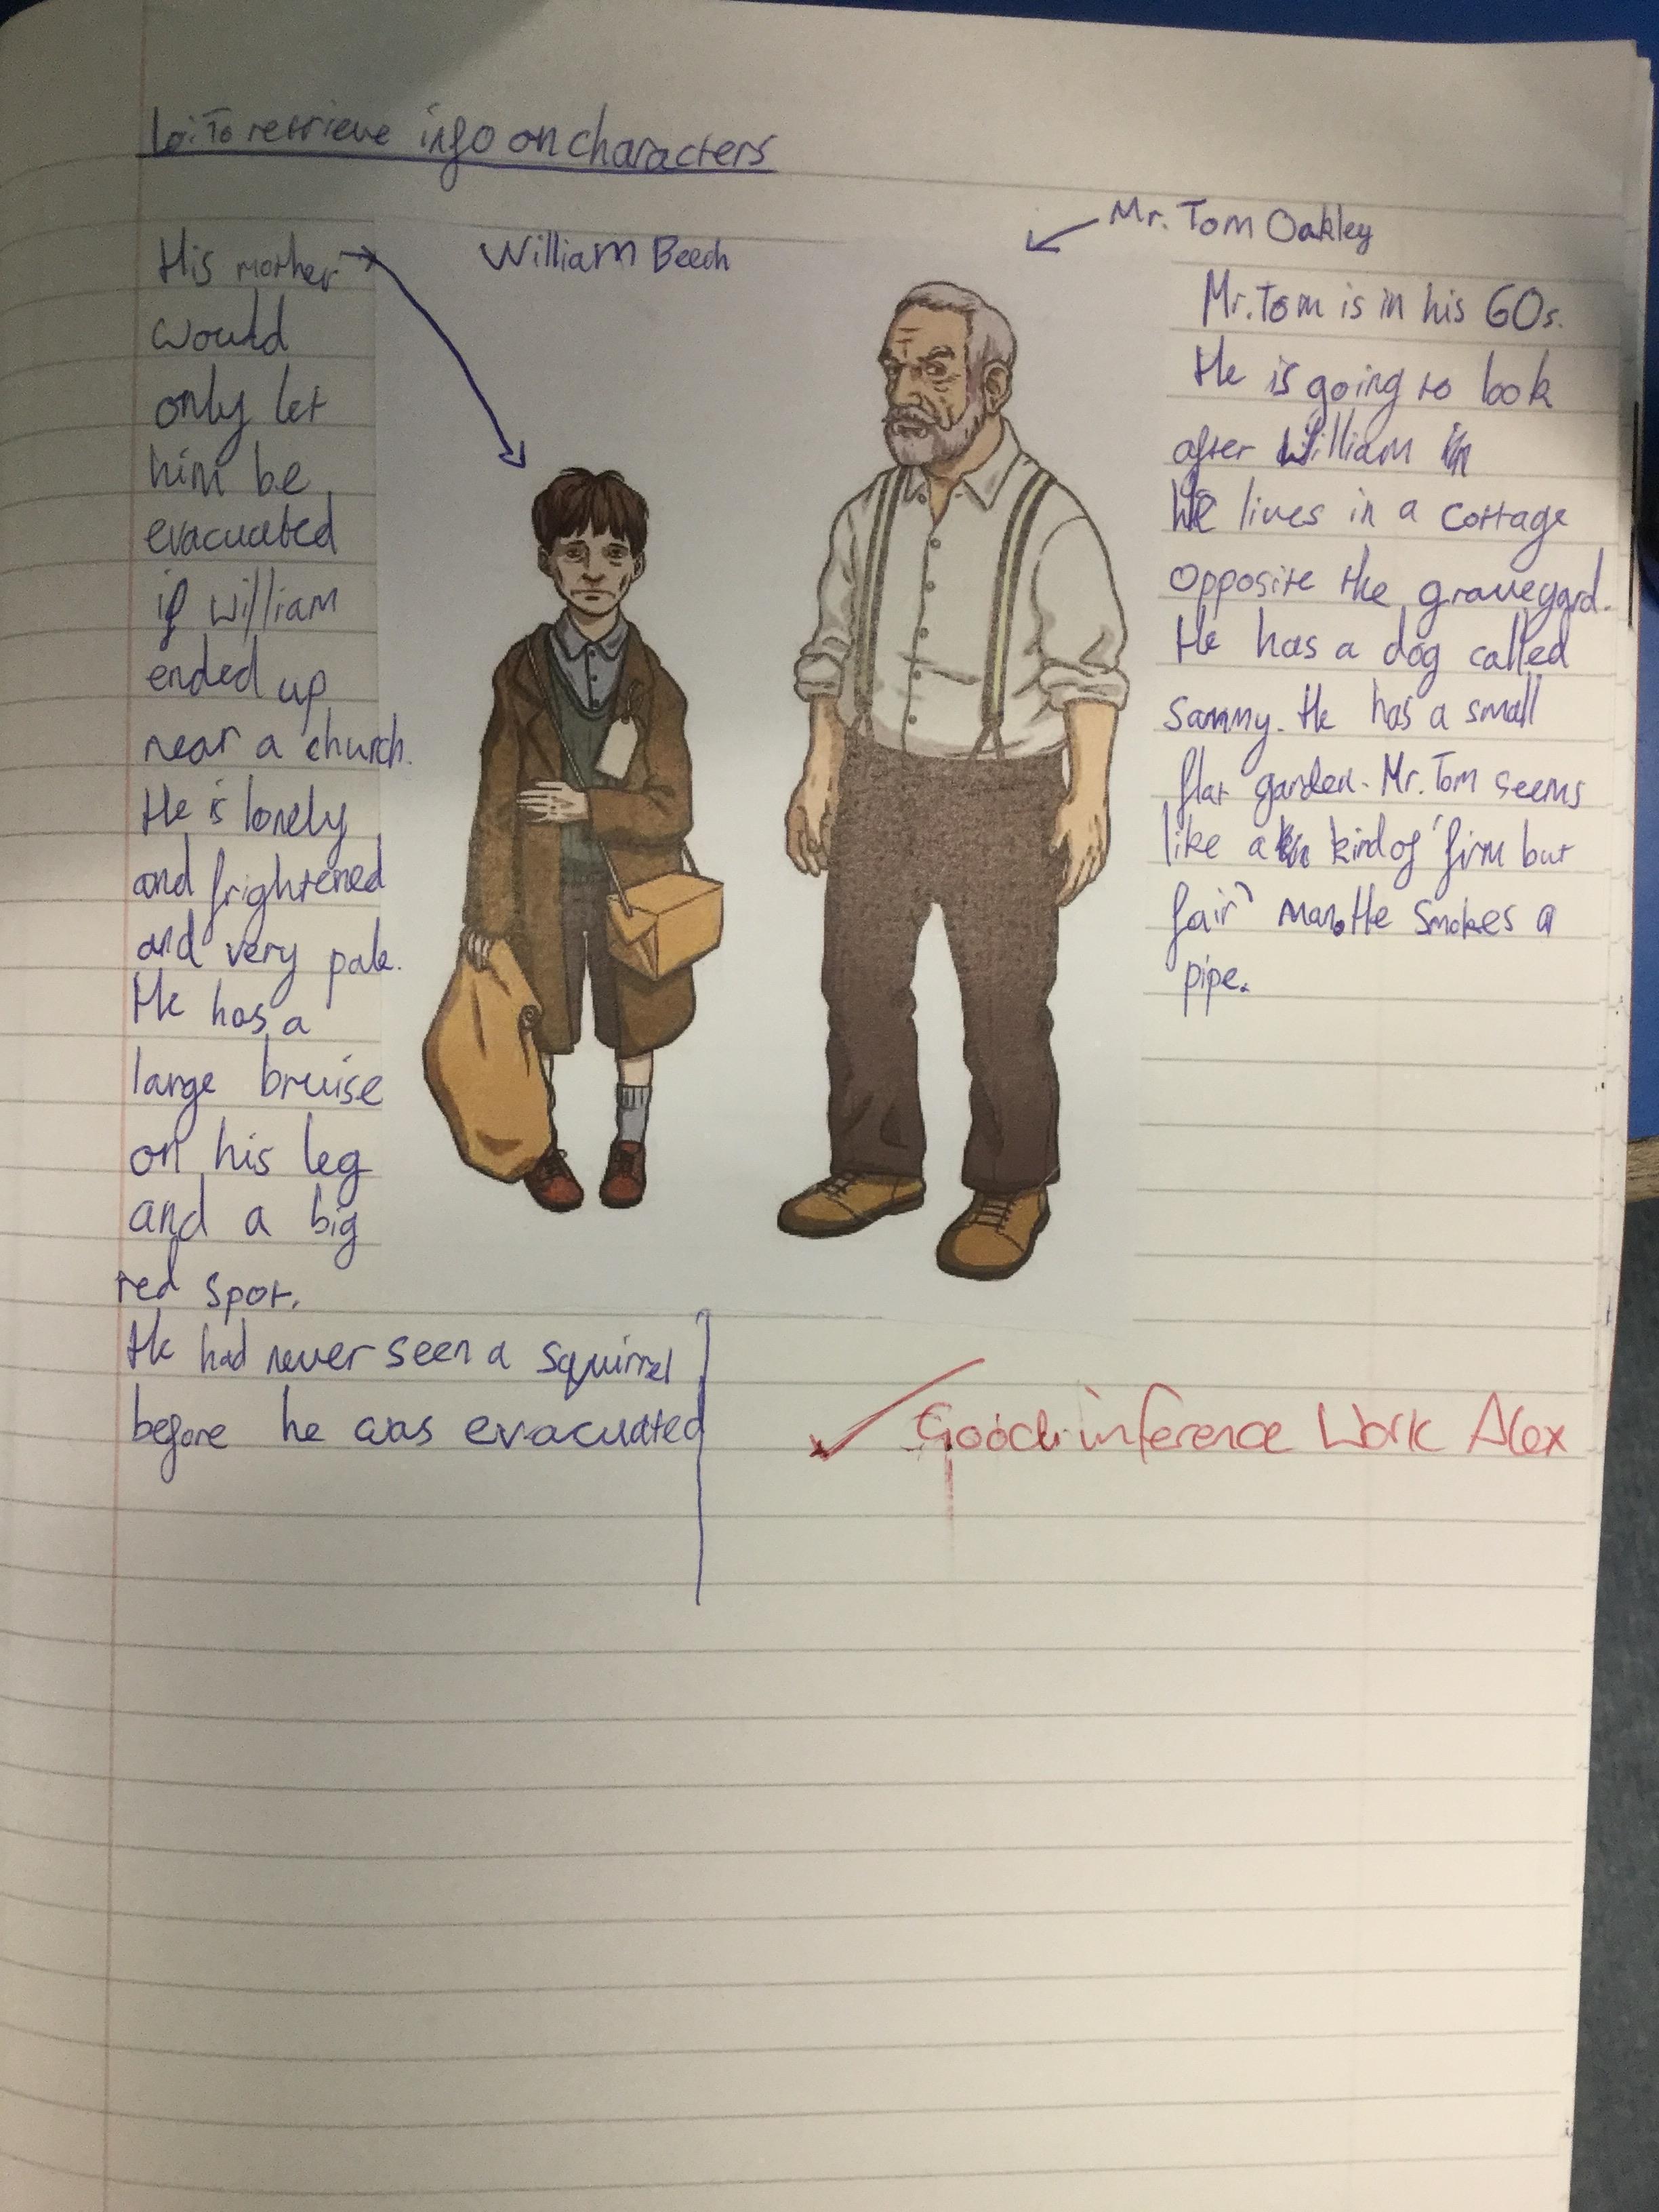 Lo: To retrieve info on characters
William Beech
His mother
would
only let
him be
evacuated
if william
ended up
near a church.
He is lonely
and frightened
and very pale.
He has a
large bruise
on his leg
and a big
red spot.
He had never seen a squirrel
before he was evacuated
Mr. Tom Oakley
Mr. Tom is in his 60s.
He is going to look
after William
He lives in a cottage
opposite the graveyard.
He has a dog called
Sammy. He has a small
flat garden. Mr. Tom seems
like a kind of 'firm but
fair' man. He smokes a
pipe.
Good inference Work Alex